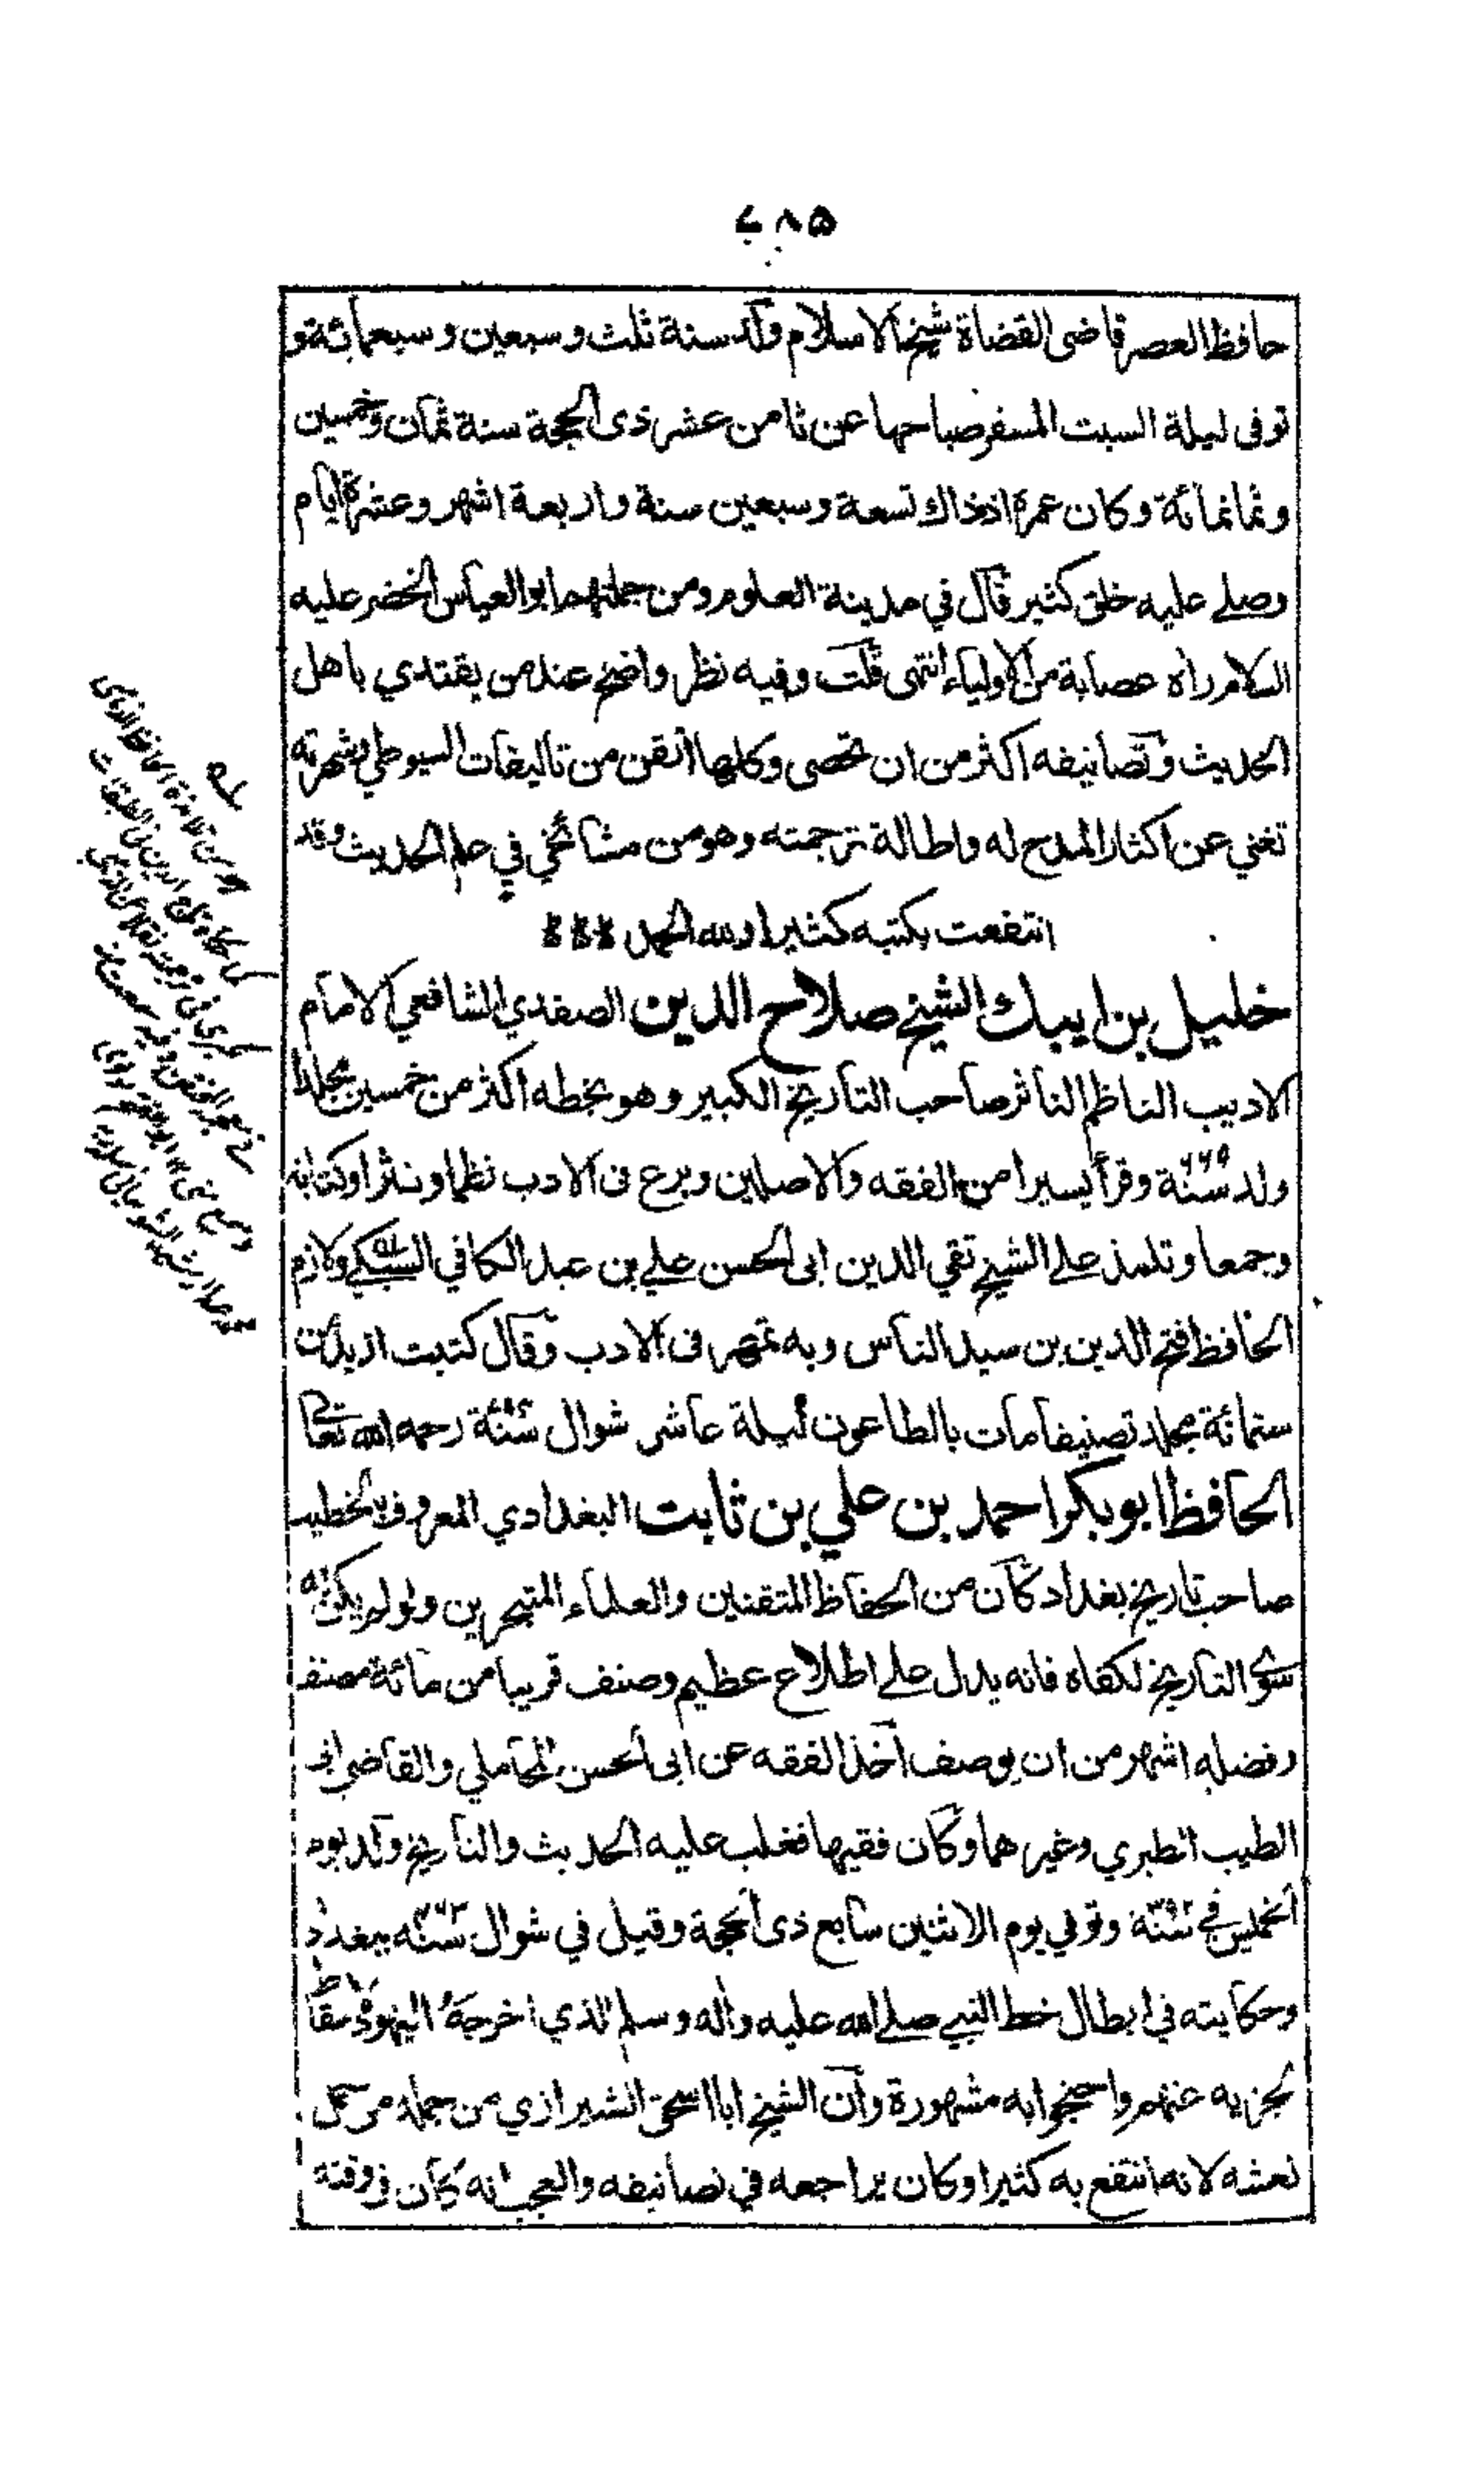 ۷۸۵
حافظ العصر قاضى القضاة شيخ الاسلام ولد سنة ثلث وسبعين وسبعمائة و
توفى ليلة السبت المسفر صباحها عن ثامن عشر ذى الحجة سنة ثمان وخمسين
وثمانمائة وكان عمره اذ ذاك تسعة وسبعين سنة واربعة اشهر وعشرة ايام
وصلے عليه خلق كثير قال في مدينة العلوم ومن جملتهم ابو العباس الخضر عليه
السلام راه عصابة من الاولياء انتهى قلت وفيه نظر واضح عند من يقتدي باهل
الحديث وتصانيفه اكثر من ان تحصى وكلها اتقن من تاليفات السيوطي وشهرته
تغني عن اكثار المدح له واطالة ترجمته وهو من مشائخي في علم الحديث وقد
انتفعت بكتبه كثيرا ولله الحمد
خليل بن ايبك الشيخ صلاح الدين الصفدي الشافعي الامام
الاديب الناظم الناثر صاحب التاريخ الكبير وهو بخطه اكثر من خمسين مجلدا
ولد سنة وقرأ يسيرا من الفقه والاصلين وبرع فى الادب نظما ونثرا وكتابة
وجمعا وتلمذ علے الشيخ تقي الدين ابى الحسن علے بن عبد الكافي السبكے ولازم
الحافظ فتح الدين بن سيد الناس وبه تمهر فى الادب وقال كتبت ازيد من
ستمائة مجلد تصنيفا مات بالطاعون ليلة عاشر شوال سنة رحمه الله تعالى
الحافظ ابو بكر احمد بن علي بن ثابت البغدادي المعروف بالخطيب
صاحب تاريخ بغداد كان من الحفاظ المتقنين والعلماء المتبحرين ولو لم يكن له
سوى التاريخ لكفاه فانه يدل علے اطلاع عظيم وصنف قريبا من مائة مصنف
وفضله اشهر من ان يوصف اخذ الفقه عن ابى الحسن المحاملي والقاضى ابى
الطيب الطبري وغيرهما وكان فقيها فغلب عليه الحديث والتاريخ ولد يوم
الخميس في سنة وتوفي يوم الاثنين سابع ذى الحجة وقيل في شوال سنة ۴۶۳ ببغداد
وحكايته في ابطال خط النبي صلے الله عليه واله وسلم الذي اخرجه اليهود باسقاط
الجزية عنهم واحتجوا به مشهورة وان الشيخ ابا اسحق الشيرازي من جملة من حمل
نعشه لانه انتفع به كثيرا وكان يراجعه في تصانيفه والعجب انه كان فى وقته